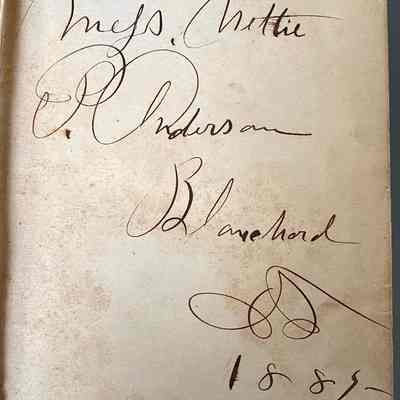 Miss. Nettie
P. Anderson
Blanchard
1885